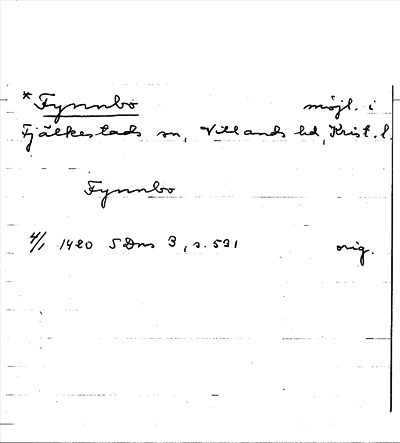 * Fynnbo möjl. i
Fjälkestads sn, Villands hd, Krist. l.
Fynnbo
4/1 1420 SDns 3, s. 531 orig.